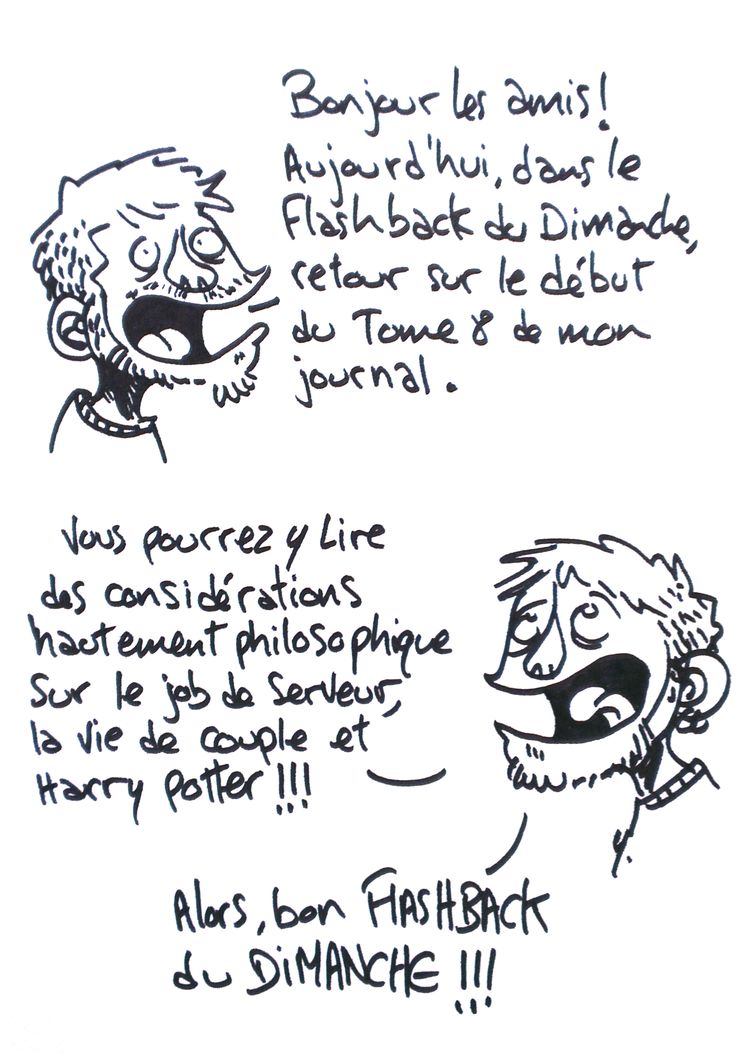 Bonjour les amis!
Aujourd'hui, dans le
Flashback du Dimanche,
retour sur le début
du Tome 8 de mon
journal.
Vous pourrez y Lire
des considérations
hautement philosophique
sur le job de serveur,
la vie de couple et
Harry Potter!!!
Alors, bon FLASHBACK
du DiMANCHE!!!